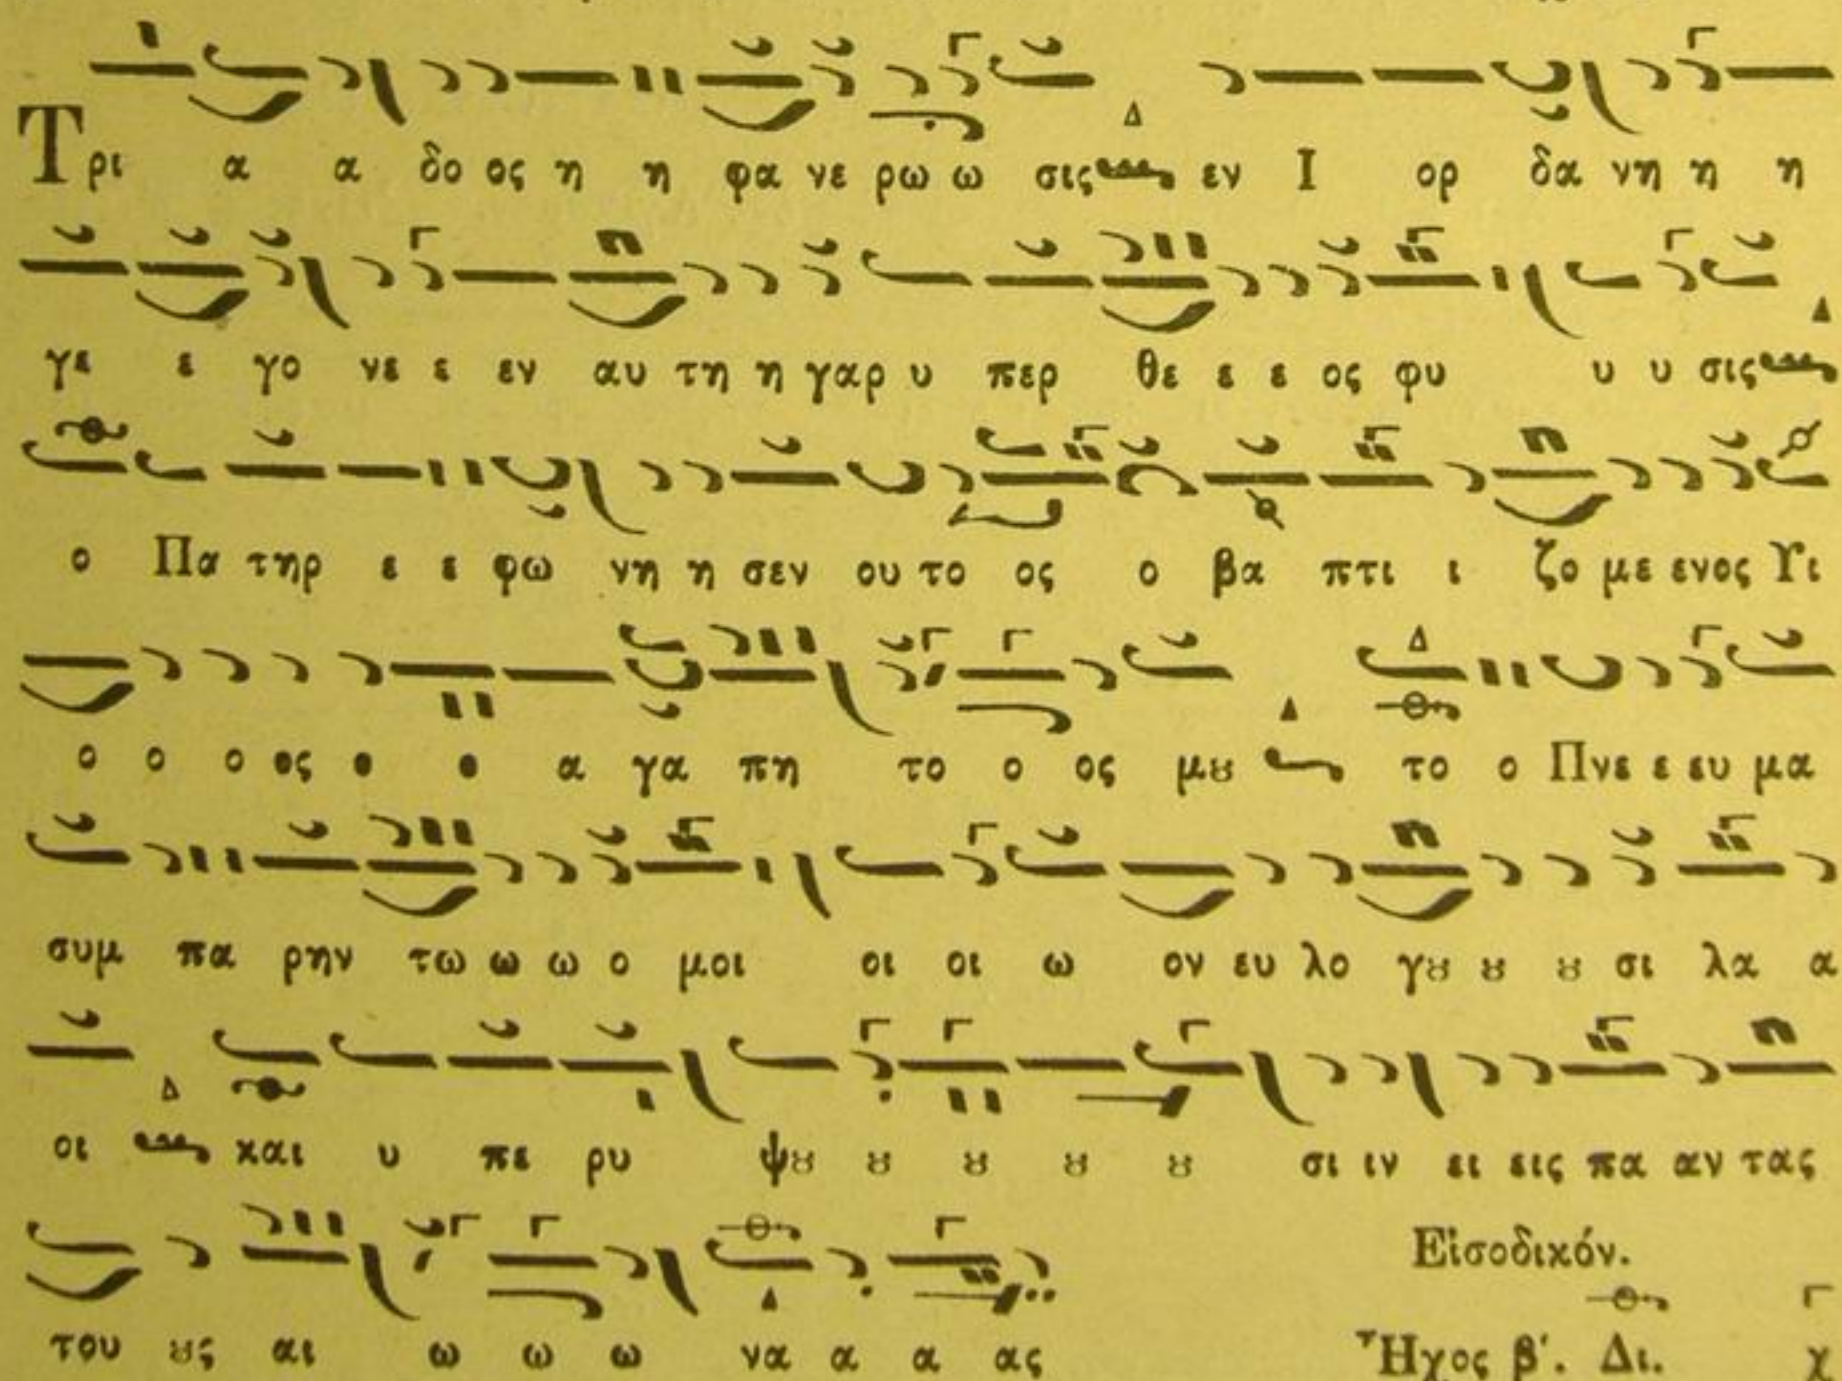 Τρι α α δο ος η η φα νε ρω ω σις εν Ι ορ δα νη η η
γε ε γο νε ε εν αυ τη η γαρ υ περ θε ε ε ος φυ υ υ σις
ο Πα τηρ ε ε φω νη η σεν ου το ος ο βα πτι ι ζο με ενος Υι
ο ο ο ος ο ο α γα πη το ο ος μȣ το ο Πνε ε ευ μα
συμ πα ρην τω ω ω ο μοι οι οι ω ον ευ λο γȣ ȣ ȣ σι λα α
οι και υ πε ρυ ψȣ ȣ ȣ ȣ ȣ σι ιν ει εις πα αν τας
του ȣς αι ω ω ω να α α ας
Εἰσοδικόν.
Ἦχος β΄. Δι. χ